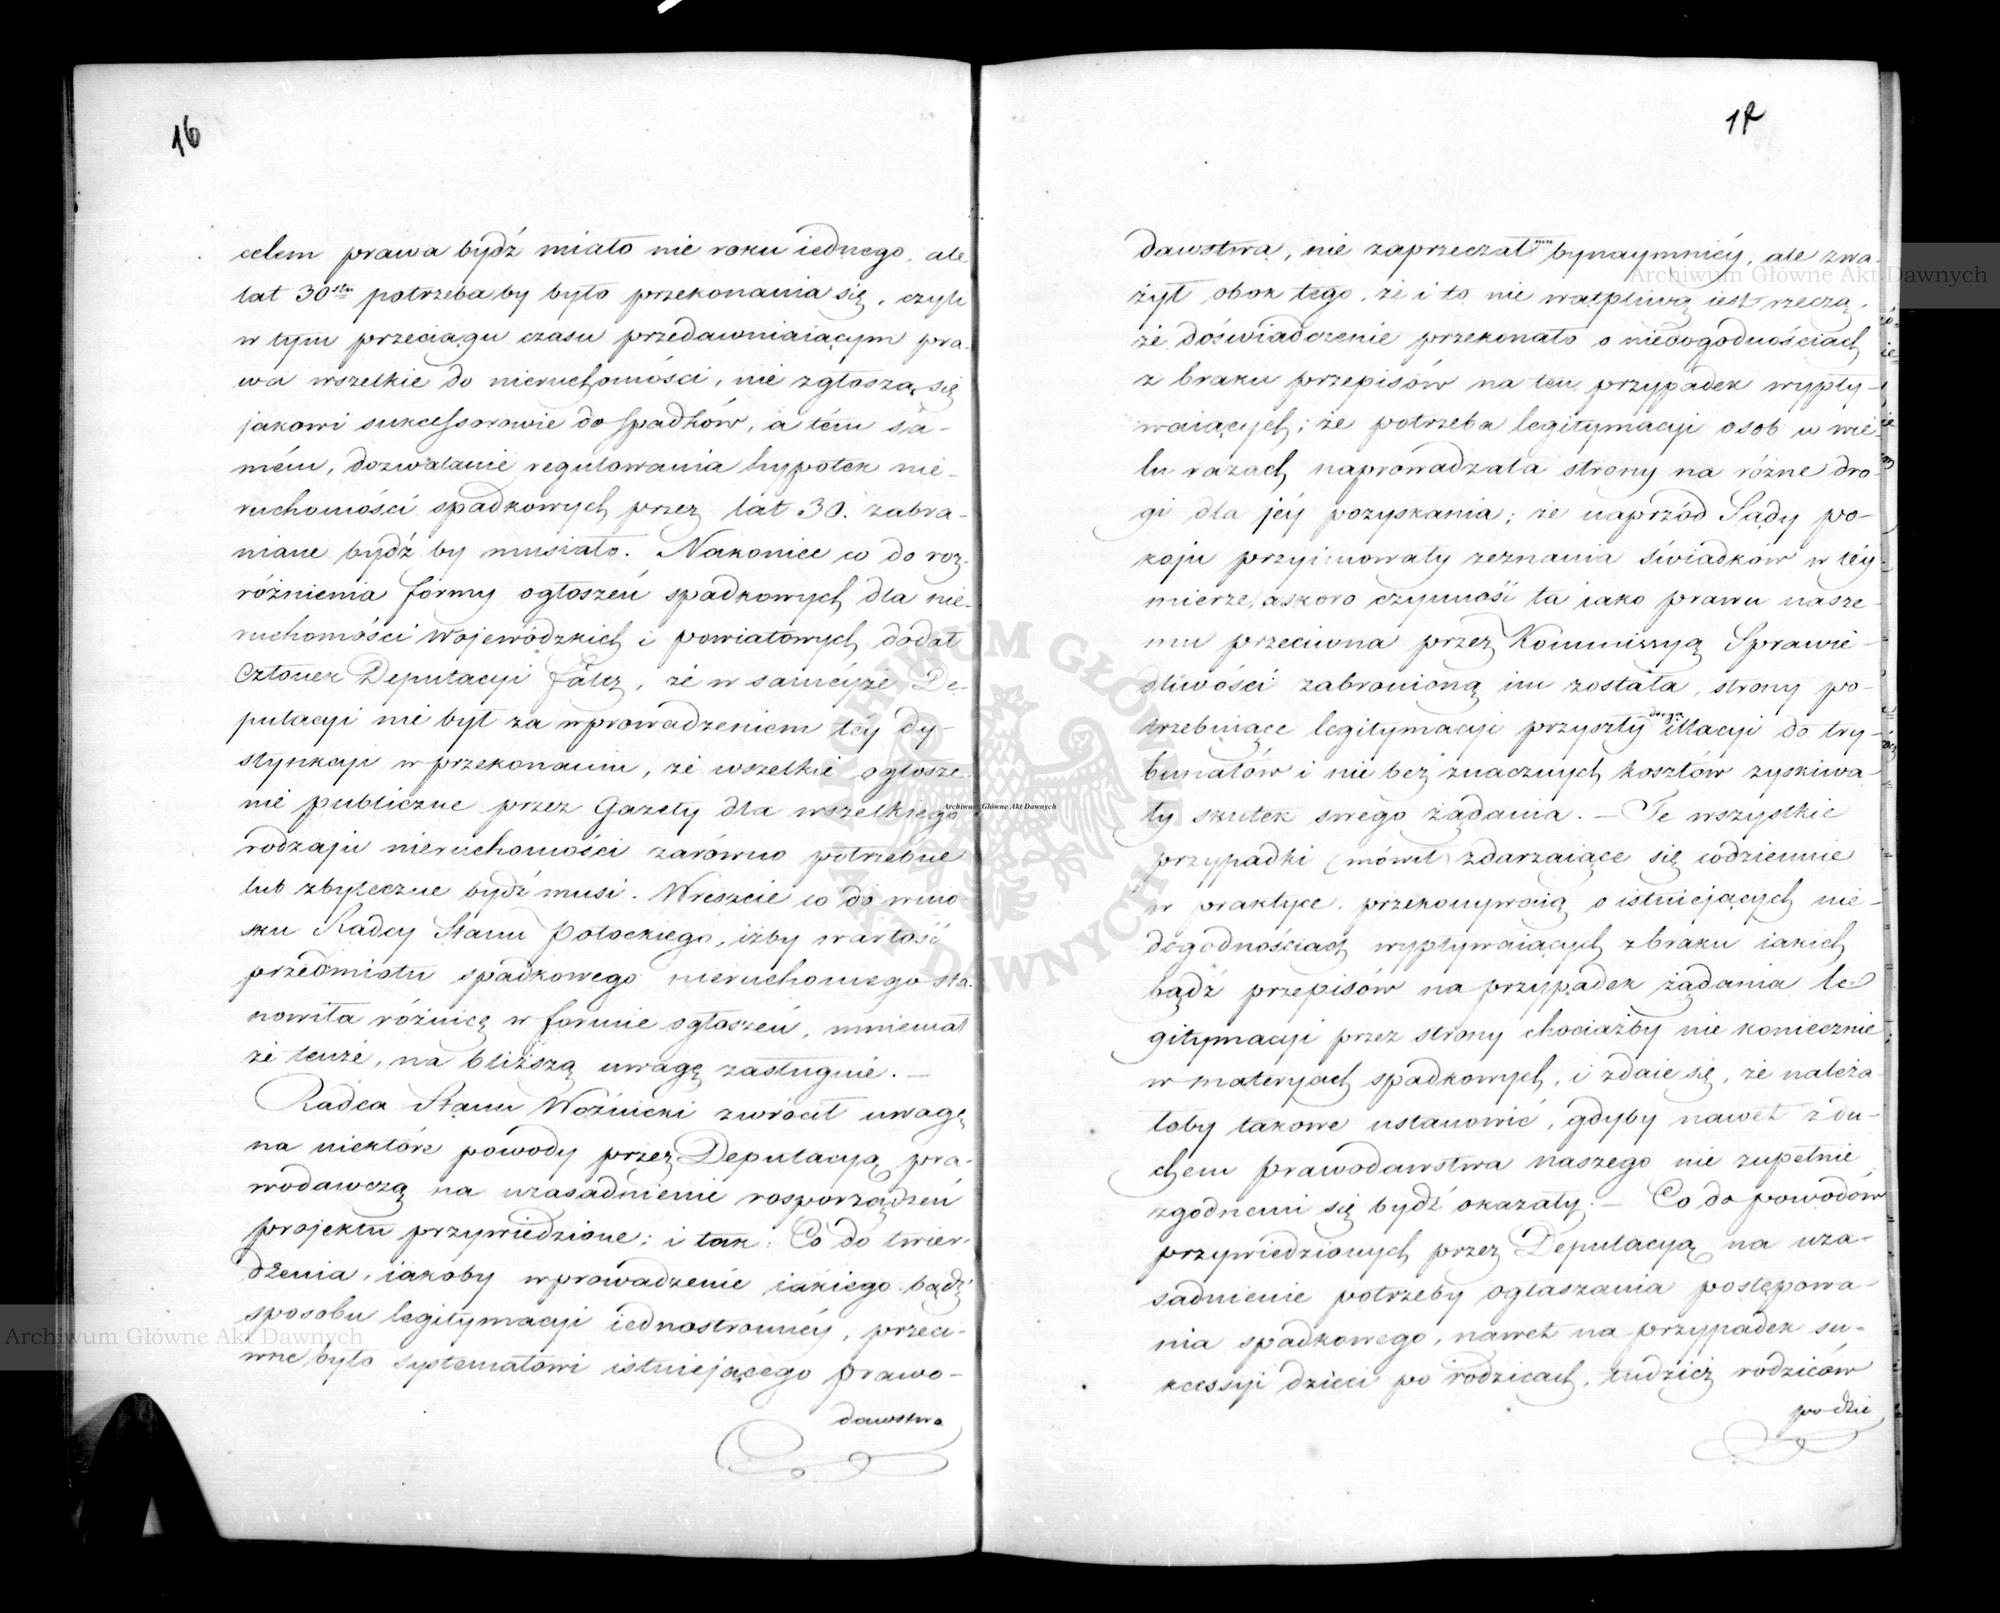 16
celem prawa bydź miało nie roku iednego, ale
lat 30stu potrzebaby było przekonania się, czyli
w tym przeciągu czasu przedawniaiącym pra-
wa wszelkie do nieruchomości, nie zgłoszą się
jakowi sukcessorowie do spadków, a tém sa-
mém, dozwalanie regulowania hypotek nie-
ruchomości spadkowych przez lat 30. zabra-
niane bydź by musiało. Nakoniec co do roz-
różnienia formy ogłoszeń spadkowych dla nie-
ruchomości Wojewódzkich i powiatowych dodał
Członek Deputacyi Falcz, że w samejże De-
putacyi nie był za wprowadzeniem téy dy-
stynkcyi w przekonaniu, że wszelkie ogłosze-
nie publiczne przez Gazety dla wszelkiego
rodzaju nieruchomości zarówno potrzebne
lub zbyteczne bydź musi. Wreszcie co do wnio-
sku Radcy Stanu Potockiego, iżby wartość
przedmiotu spadkowego nieruchomego sta-
nowiła różnicę w formie ogłoszeń, mniemał
że tenże, na bliższą uwagę zasługuie. –
Radca Stanu Woźnicki zwrócił uwagę
na niektóre powody przez Deputacyą pra-
wodawczą na uzasadnienie rosporządzeń
projektu przywiedzione; i tak: Co do twier-
dzenia, iakoby wprowadzenie iakiego bądź
sposobu legitymacyi iednostronnéy, przeci-
wne było systematowi istniejącego prawo-
dawstwa
17
dawstwa, nie zaprzeczał mu bynaymniéy, ale zwa-
żył obok tego, że i to nie wątpliwą iest rzeczą,
że doświadczenie przekonało o niedogodnościach
z braku przepisów na ten przypadek wypły-
waiących; że potrzeba legitymacyi osob w wie-
lu razach naprowadzała strony na różne dro-
gi dla jéy pozyskania; że naprzód Sądy po-
koju przyimowały zeznania świadków w téy
mierze, a skoro czynność ta iako prawu nasze-
mu przeciwna przez Kommissyą Sprawie-
dliwości zabronioną im została, strony po-
trzebuiące legitymacyi przyszły drogą illacyi do try-
bunałów i nie bez znacznych kosztów zyskiwa-
ły skutek swego żądania. – Te wszystkie
przypadki (mówił) zdarzaiące się codziennie
w praktyce, przekonywaią o istniejących nie-
dogodnościach wypływaiących z braku iakich
bądź przepisów na przypadek żądania le-
gitymacyi przez strony chociażby nie koniecznie
w materyach spadkowych, i zdaie się, że należa-
łoby takowe ustanowić, gdyby nawet z du-
chem prawodawstwa naszego nie zupełnie
zgodnemi się bydź okazały. – Co do powodów
przywiedzionych przez Deputacyą na uza-
sadnienie potrzeby ogłaszania postępowa-
nia spadkowego, nawet na przypadek su-
kcessyi dzieci po rodzicach, tudzież rodziców
po dzie
Archiwum Główne Akt Dawnych
Archiwum Główne Akt Dawnych
Archiwum Główne Akt Dawnych
ARCHIWUM GŁÓWNE AKT DAWNYCH